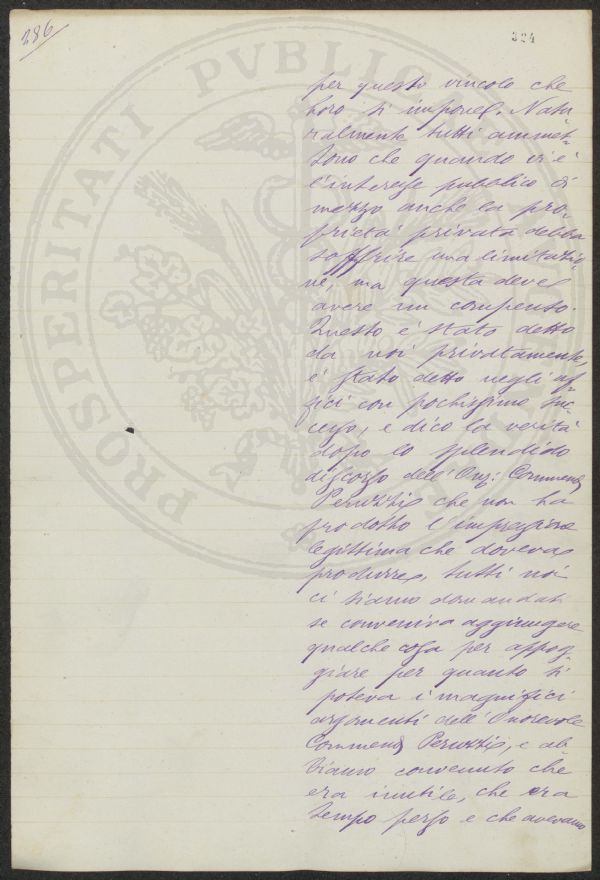 286
324
PROSPERITATI PVBLICAE
per questo vincolo che
loro si impone. Natu-
ralmente tutti ammet-
tono che quando vi è
l'interesse pubblico di
mezzo anche la pro-
prietà privata debba
soffrire una limitazio-
ne, ma questa deve
avere un compenso.
Questo è stato detto
da noi privatamente,
è stato detto negli uf-
fici con pochissimo suc-
cesso, e dico la verità
dopo lo splendido
discorso dell'On: Commend
Peruzzi che non ha
prodotto l'impressione
legittima che doveva
produrre, tutti noi
ci siamo domandati
se conveniva aggiungere
qualche cosa per appog-
giare per quanto si
poteva i magnifici
argomenti dell'Onorevole
Commend Peruzzi, e ab-
biamo convenuto che
era inutile, che era
tempo perso e che avevamo